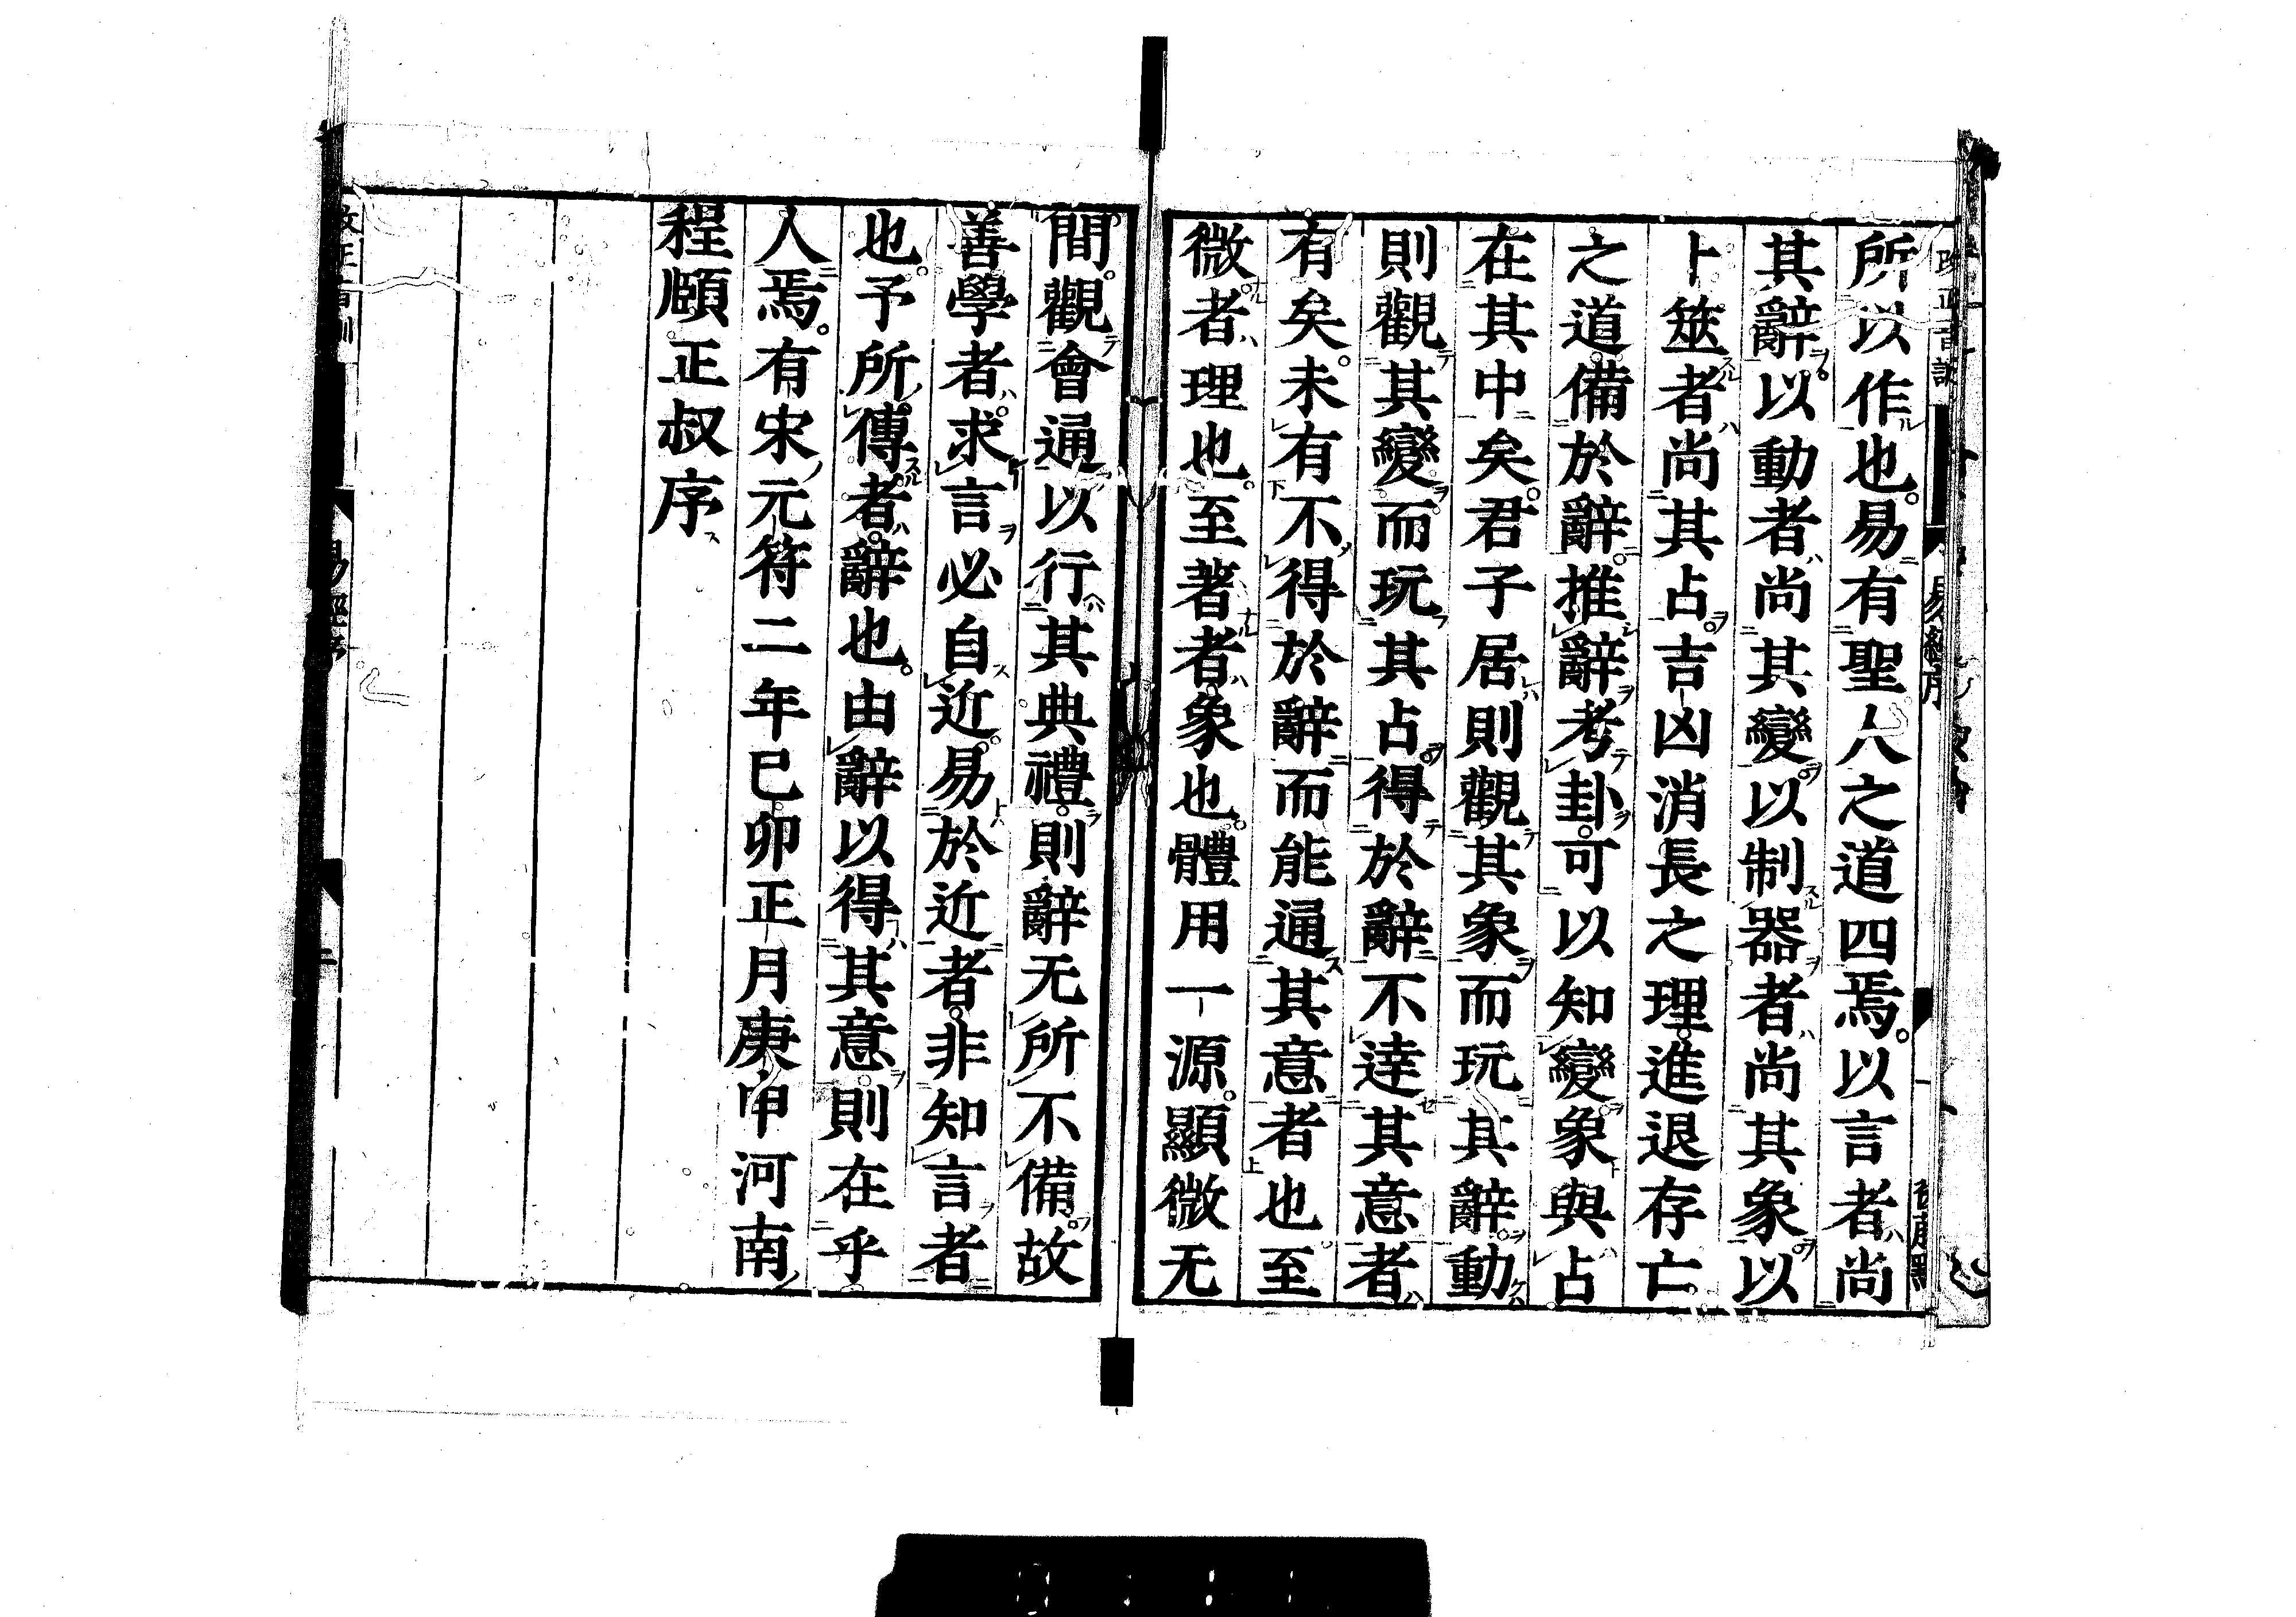 所以作也。易有聖人之道四焉。以言者尚
其辭。以動者尚其變。以制器者尚其象。以
卜筮者尚其占。吉凶消長之理。進退存亡
之道。備於辭。推辭考卦。可以知變。象與占
在其中矣。君子居則觀其象。而玩其辭。動
則觀其變。而玩其占。得於辭不達其意者
有矣。未有不得於辭而能通其意者也。至
微者理也。至著者象也。體用一源。顯微无
間。觀會通以行其典禮。則辭无所不備。故
善學者。求言必自近。易於近者。非知言者
也。予所傳者。辭也。由辭以得其意。則在乎
人焉。有宋元符二年已卯正月庚申河南
程頤正叔序